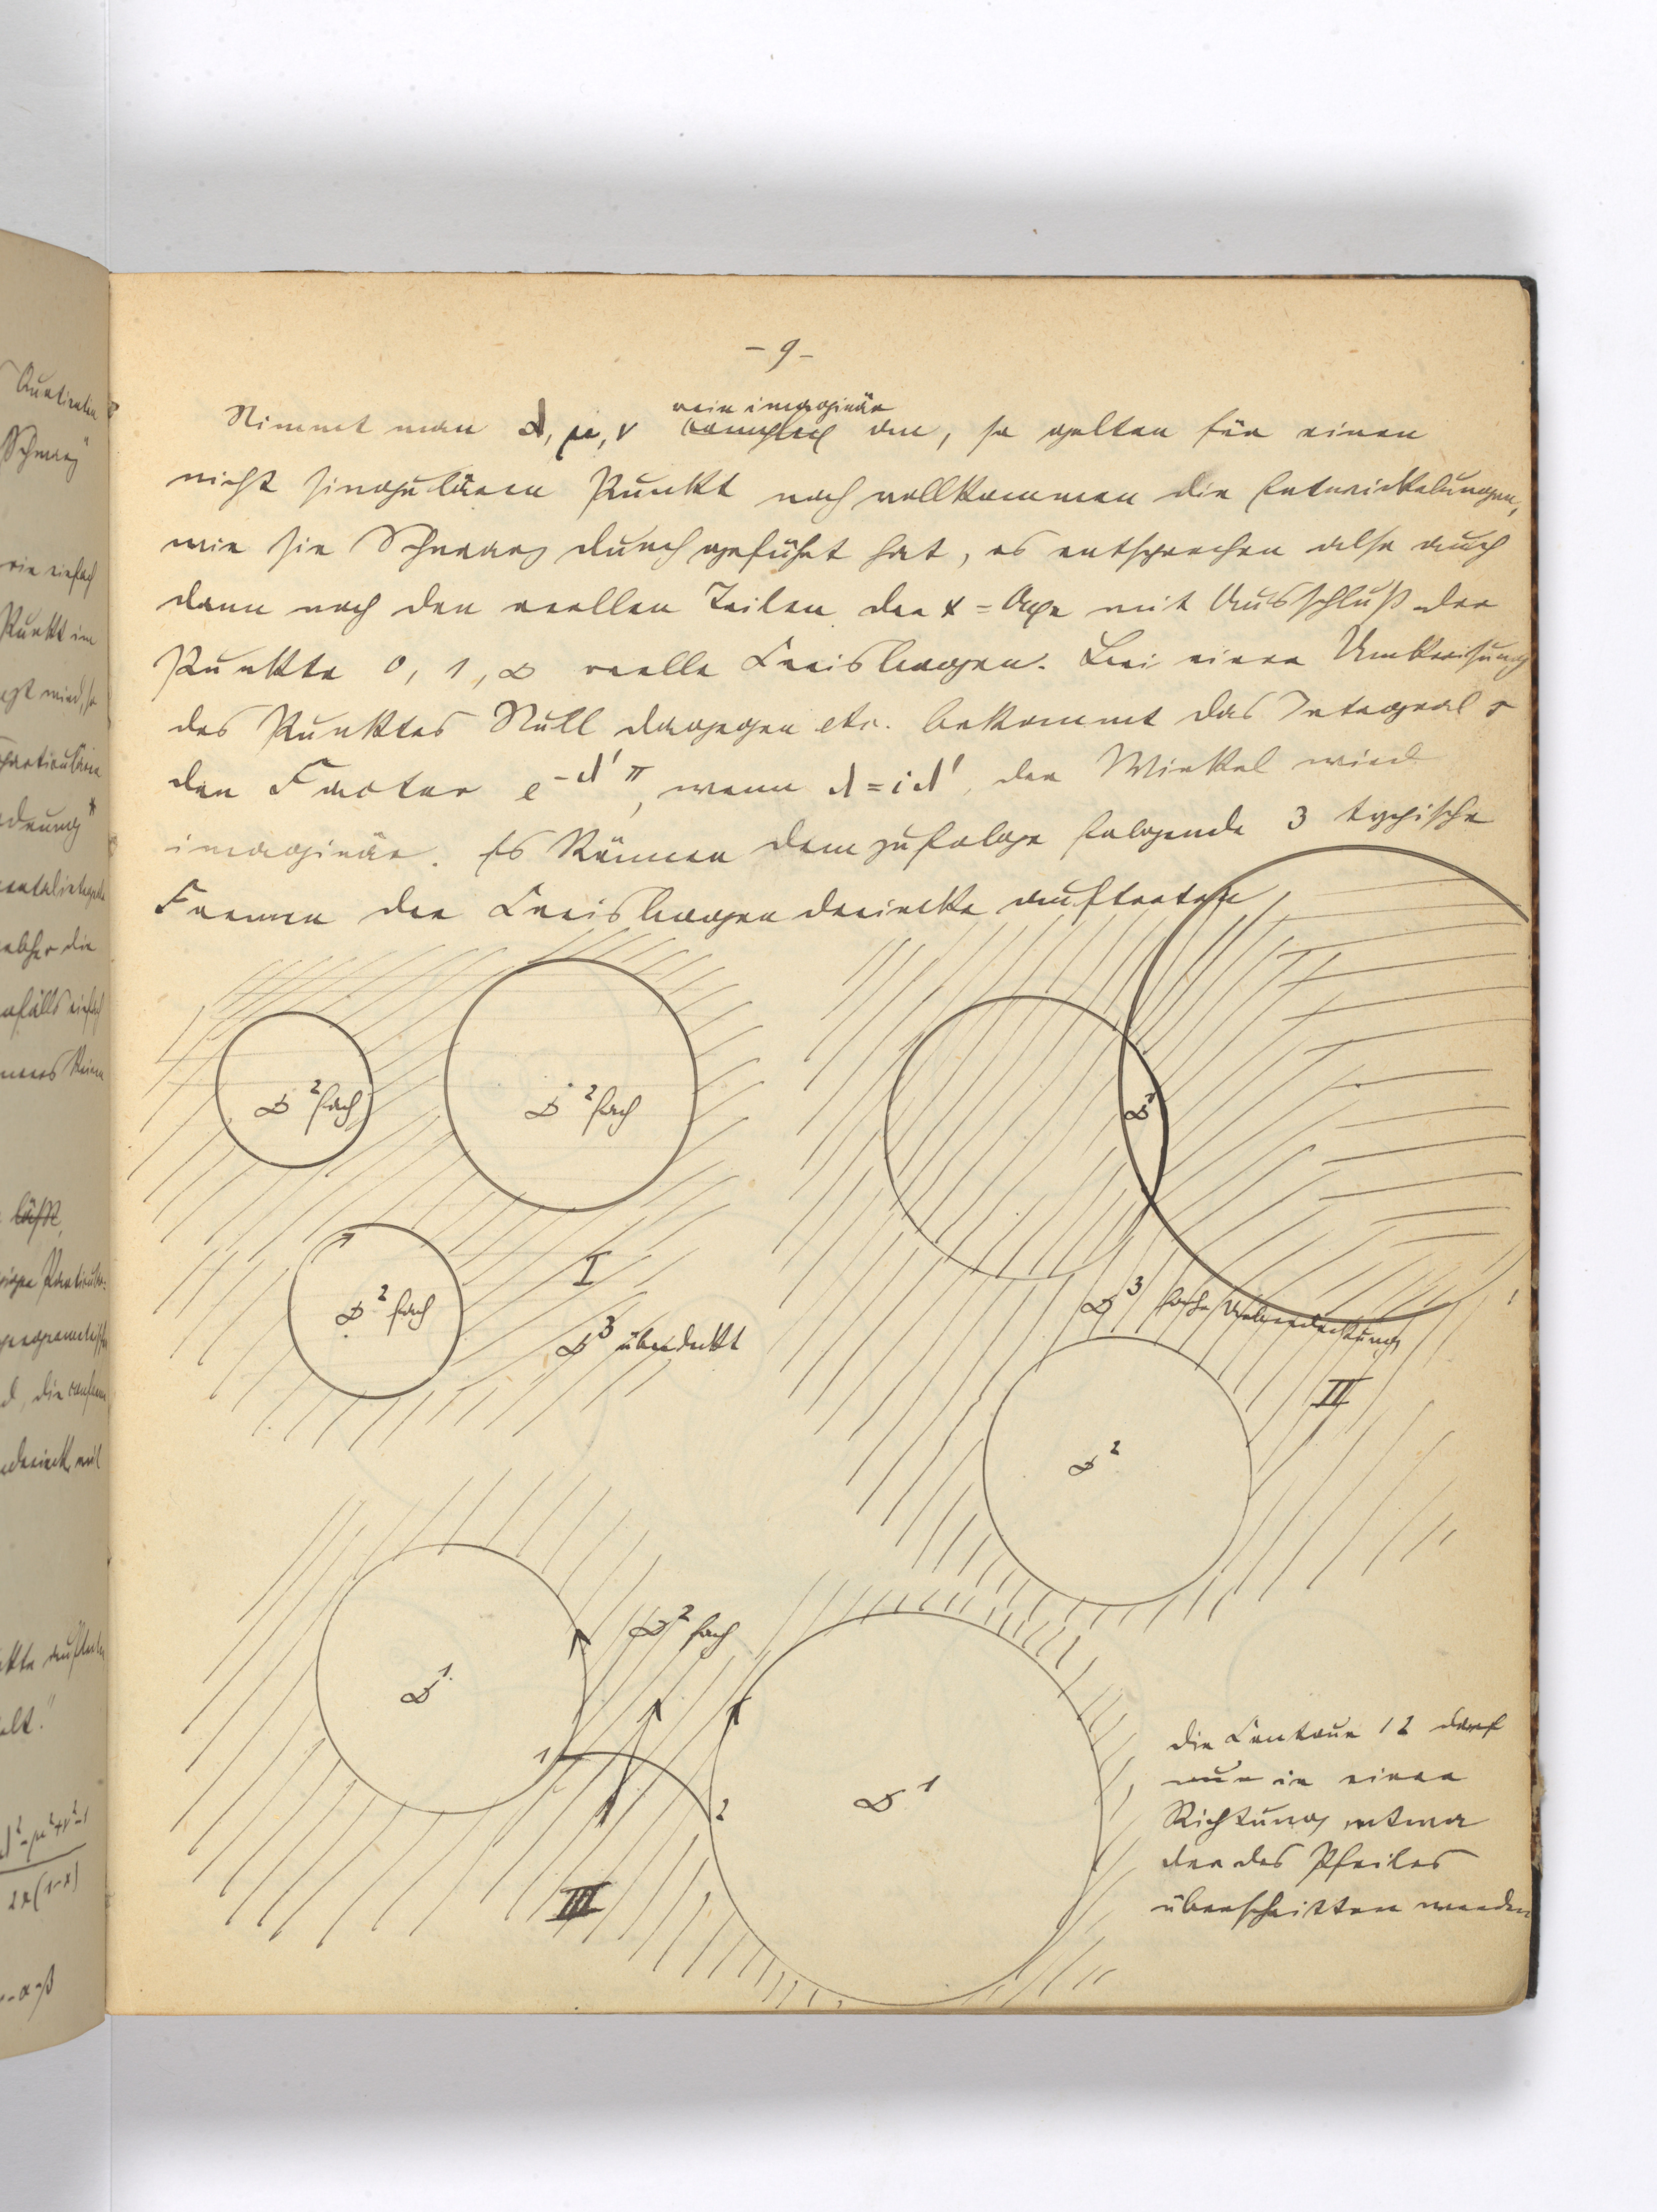 - 9 -
rein imaginär
Nimmt man λ, μ, ν complex an, so gelten für einen
nicht singulären Punkt noch vollkommen die Entwickelungen,
wie sie Schwarz durchgeführt hat, es entsprechen also auch
dann noch den reellen Teilen der x = Axe mit Ausschluß der
Punkte 0, 1, ∞ reelle Kreisbogen. Bei einer Umkreisung
des Punktes Null dagegen etc. bekommt das Integral s
den Factor e^{-λ'π}, wenn λ = iλ', der Winkel wird
imaginär. Es können demzufolge folgende 3 typische
Formen der Kreisbogendreiecke auftreten
D 2 fach
D 2 fach
D 2 fach
I
D 3 überdeckt
D 1
D 3 fache Ueberdeckung
II
D 2
D 1
D 2 fach
1
2
D 1
III
die Contour 12 darf
nur in einer
Richtung etwa
der des Pfeiles
überschritten werden